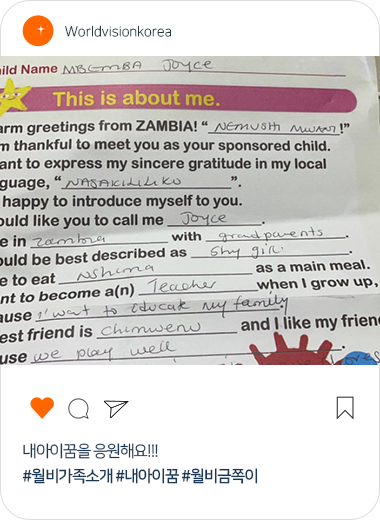 Worldvisionkorea
ild Name MBEMBA Joyce
This is about me.
arm greetings from ZAMBIA! “NEMUSHI MWANI!”
m thankful to meet you as your sponsored child.
ant to express my sincere gratitude in my local
guage, “NASAKILILIKO”.
happy to introduce myself to you.
ould like you to call me Joyce.
e in Zambia with grandparents.
ould be best described as shy girl.
e to eat Nshima as a main meal.
nt to become a(n) Teacher when I grow up,
ause I want to educak my family.
est friend is chimwenu and I like my frien
use we play well.
내아이꿈을 응원해요!!!
#월비가족소개 #내아이꿈 #월비금쪽이